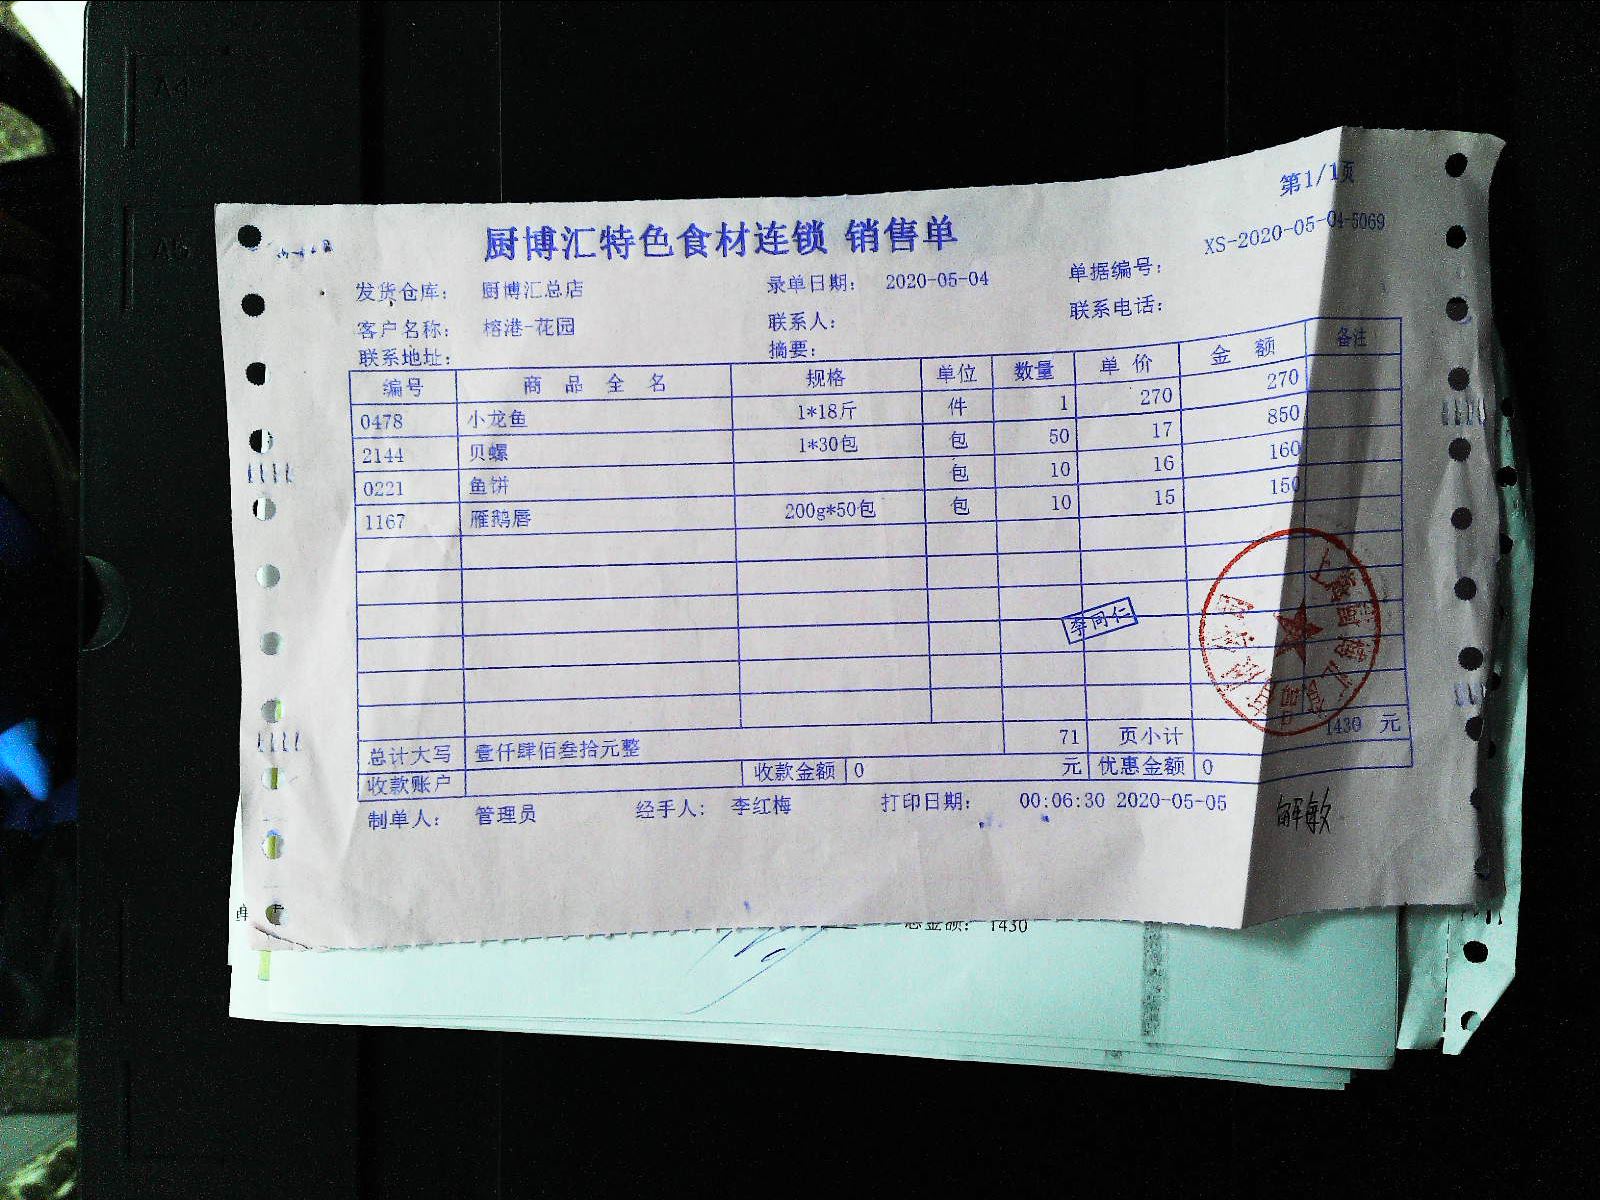 第1/1页
厨博汇特色食材连锁 销售单
发货仓库： 厨博汇总店 录单日期： 2020-05-04 单据编号： XS-2020-05-04-5069
客户名称： 榕港-花园 联系人： 联系电话：
联系地址： 摘要：
编号 商品全名 规格 单位 数量 单价 金额 备注
0478 小龙鱼 1*18斤 件 1 270 270
2144 贝螺 1*30包 包 50 17 850
0221 鱼饼 包 10 16 160
1167 雁鹅唇 200g*50包 包 10 15 150
李同仁
总计大写 壹仟肆佰叁拾元整 71 页小计 1430 元
收款账户 收款金额 0 元 优惠金额 0
制单人： 管理员 经手人： 李红梅 打印日期： 00:06:30 2020-05-05
解敏
总金额： 1430